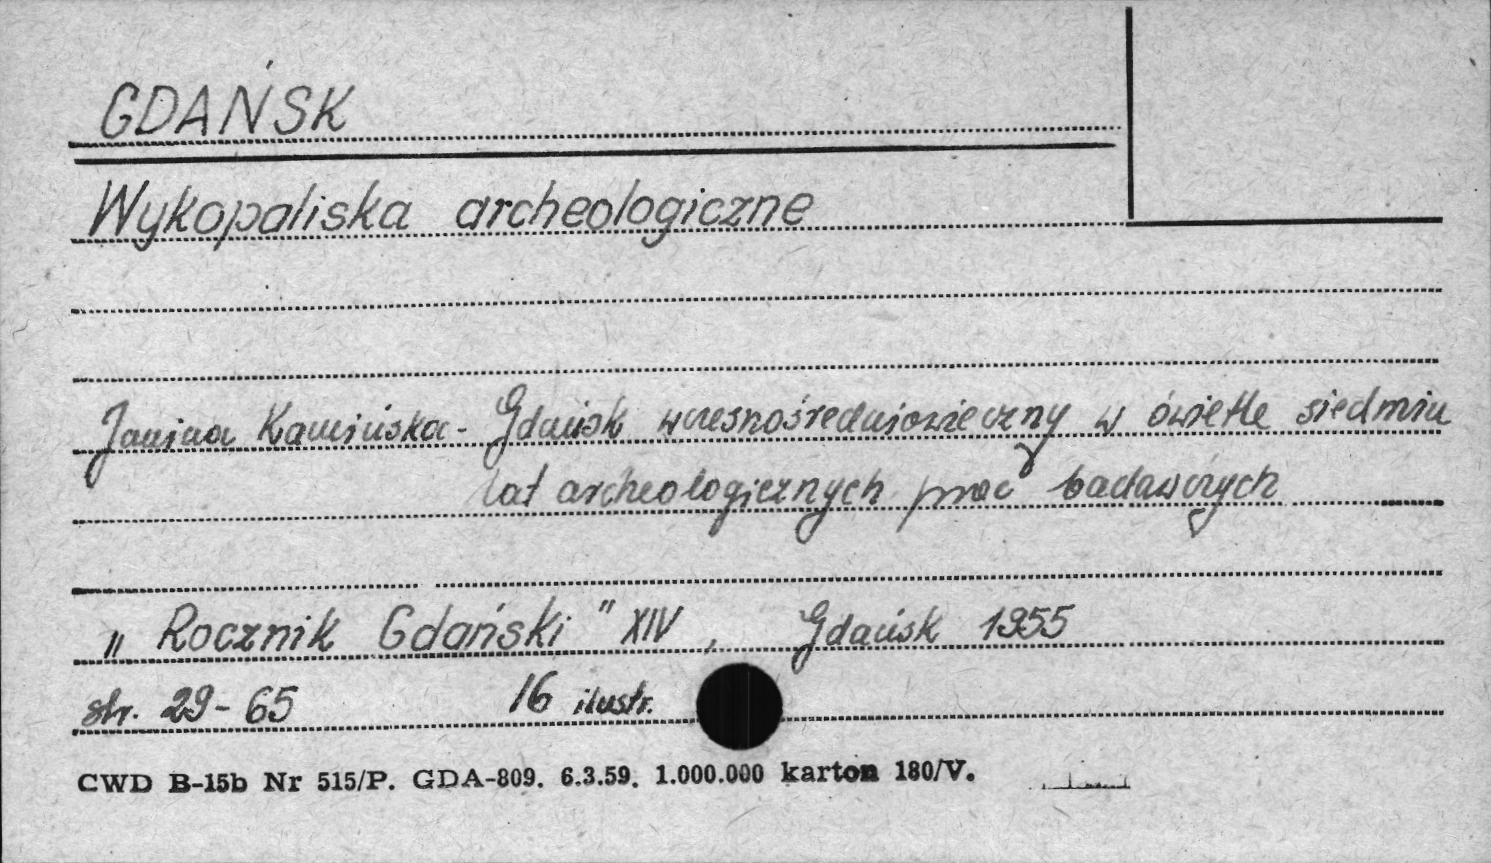 GDAŃSK
Wykopaliska archeologiczne
Janina Kamińska - Gdańsk wczesnośredniowieczny w świetle siedmiu
lat archeologicznych prac badawczych
„Rocznik Gdański" XIV, Gdańsk 1955
str. 29-65 16 ilustr.
CWD B-15b Nr 515/P. GDA-809. 6.3.59. 1.000.000 karton 180/V.